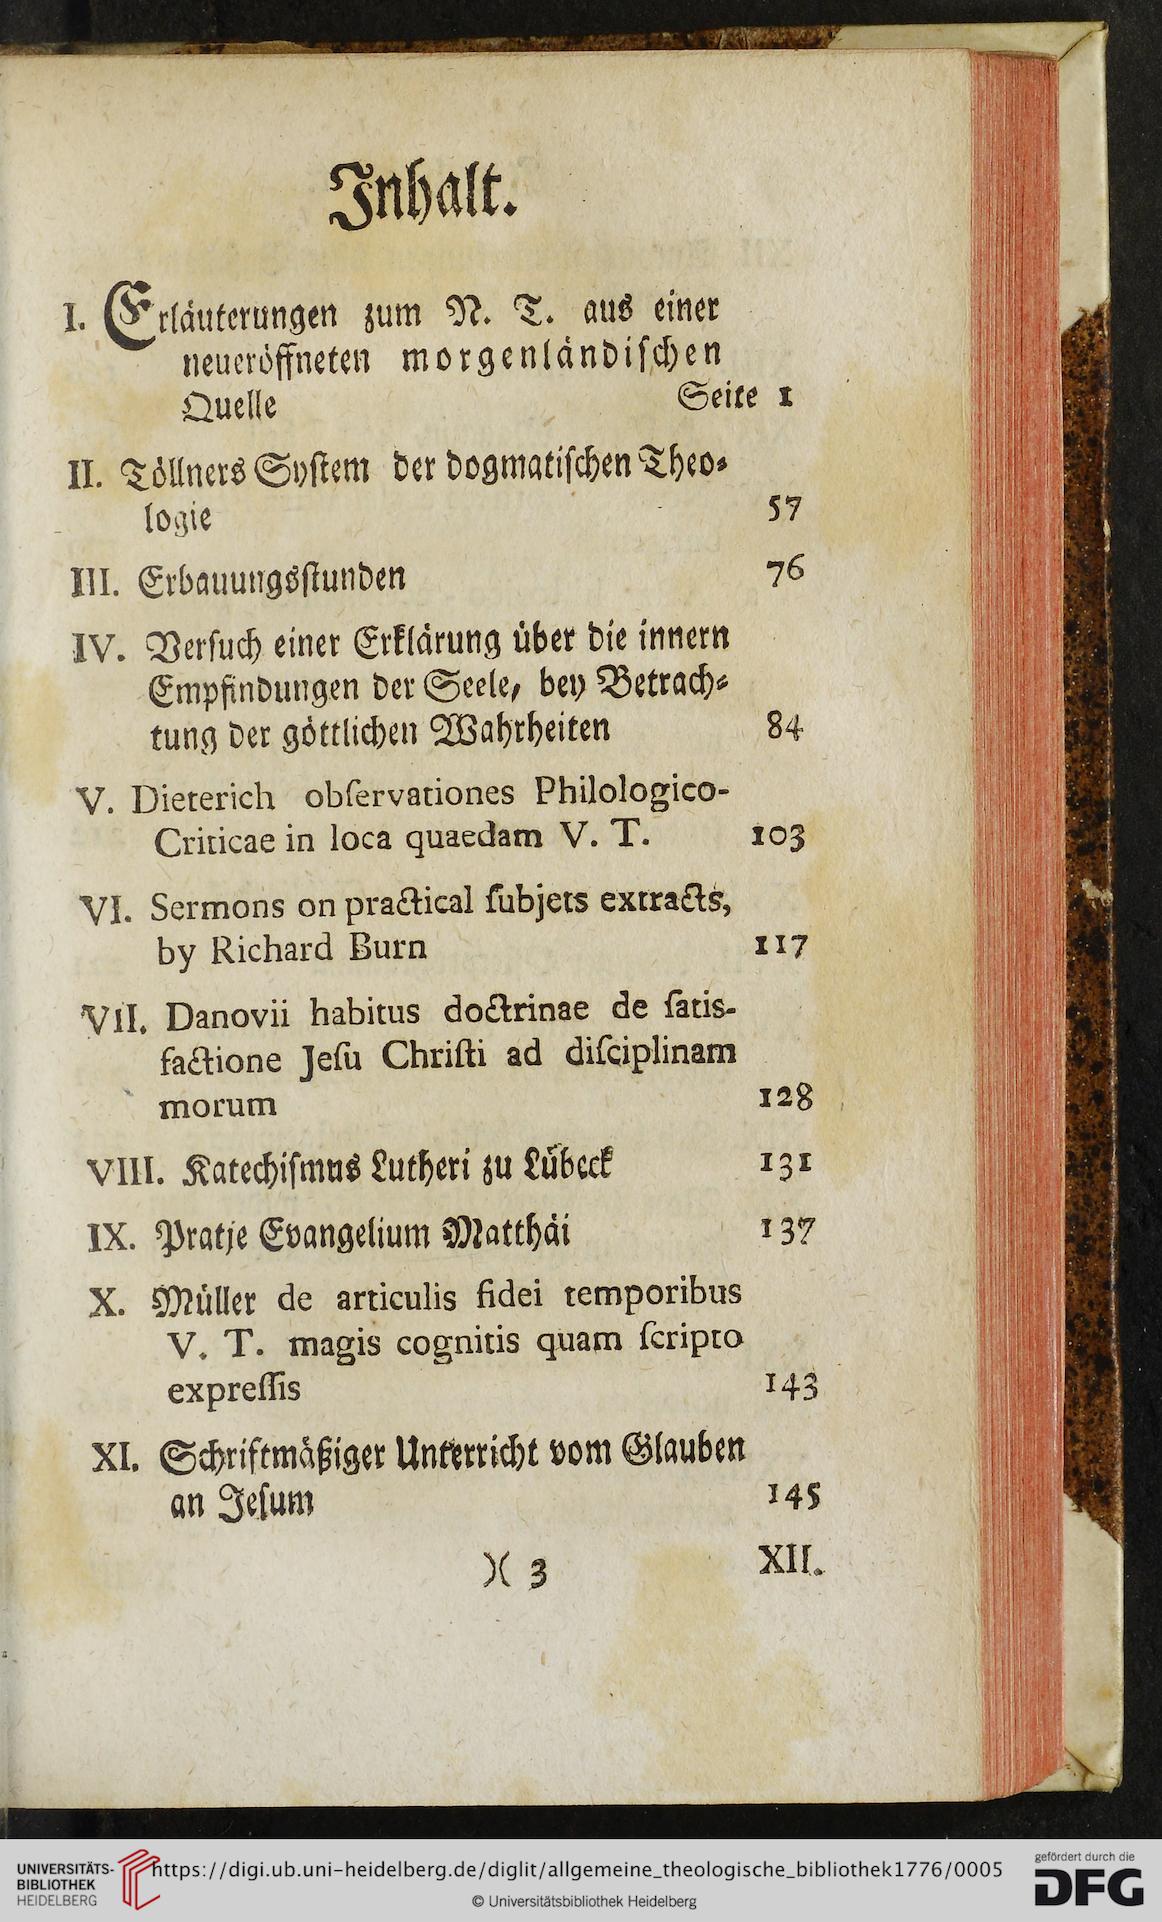 Inhalt.
I. Erläuterungen zum N. T. aus einer
neueröffneten morgenländiſchen
Quelle Seite 1
II. Töllners Syſtem der dogmatiſchen Theo-
logie 57
III. Erbauungsſtunden 76
IV. Verſuch einer Erklärung über die innern
Empfindungen der Seele, bey Betrach-
tung der göttlichen Wahrheiten 84
V. Dieterich obſervationes Philologico-
Criticae in loca quaedam V. T. 103
VI. Sermons on practical ſubjets extracts,
by Richard Burn 117
VII. Danovii habitus doctrinae de ſatis-
factione Jeſu Chriſti ad diſciplinam
morum 128
VIII. Katechiſmus Lutheri zu Lübeck 131
IX. Pratje Evangelium Matthäi 137
X. Müller de articulis fidei temporibus
V. T. magis cognitis quam ſcripto
expreſſis 143
XI. Schriftmäßiger Unterricht vom Glauben
an Jeſum 145
)( 3 XII.
UNIVERSITÄTS-
BIBLIOTHEK
HEIDELBERG
https://digi.ub.uni-heidelberg.de/diglit/allgemeine_theologische_bibliothek1776/0005
© Universitätsbibliothek Heidelberg
gefördert durch die
DFG